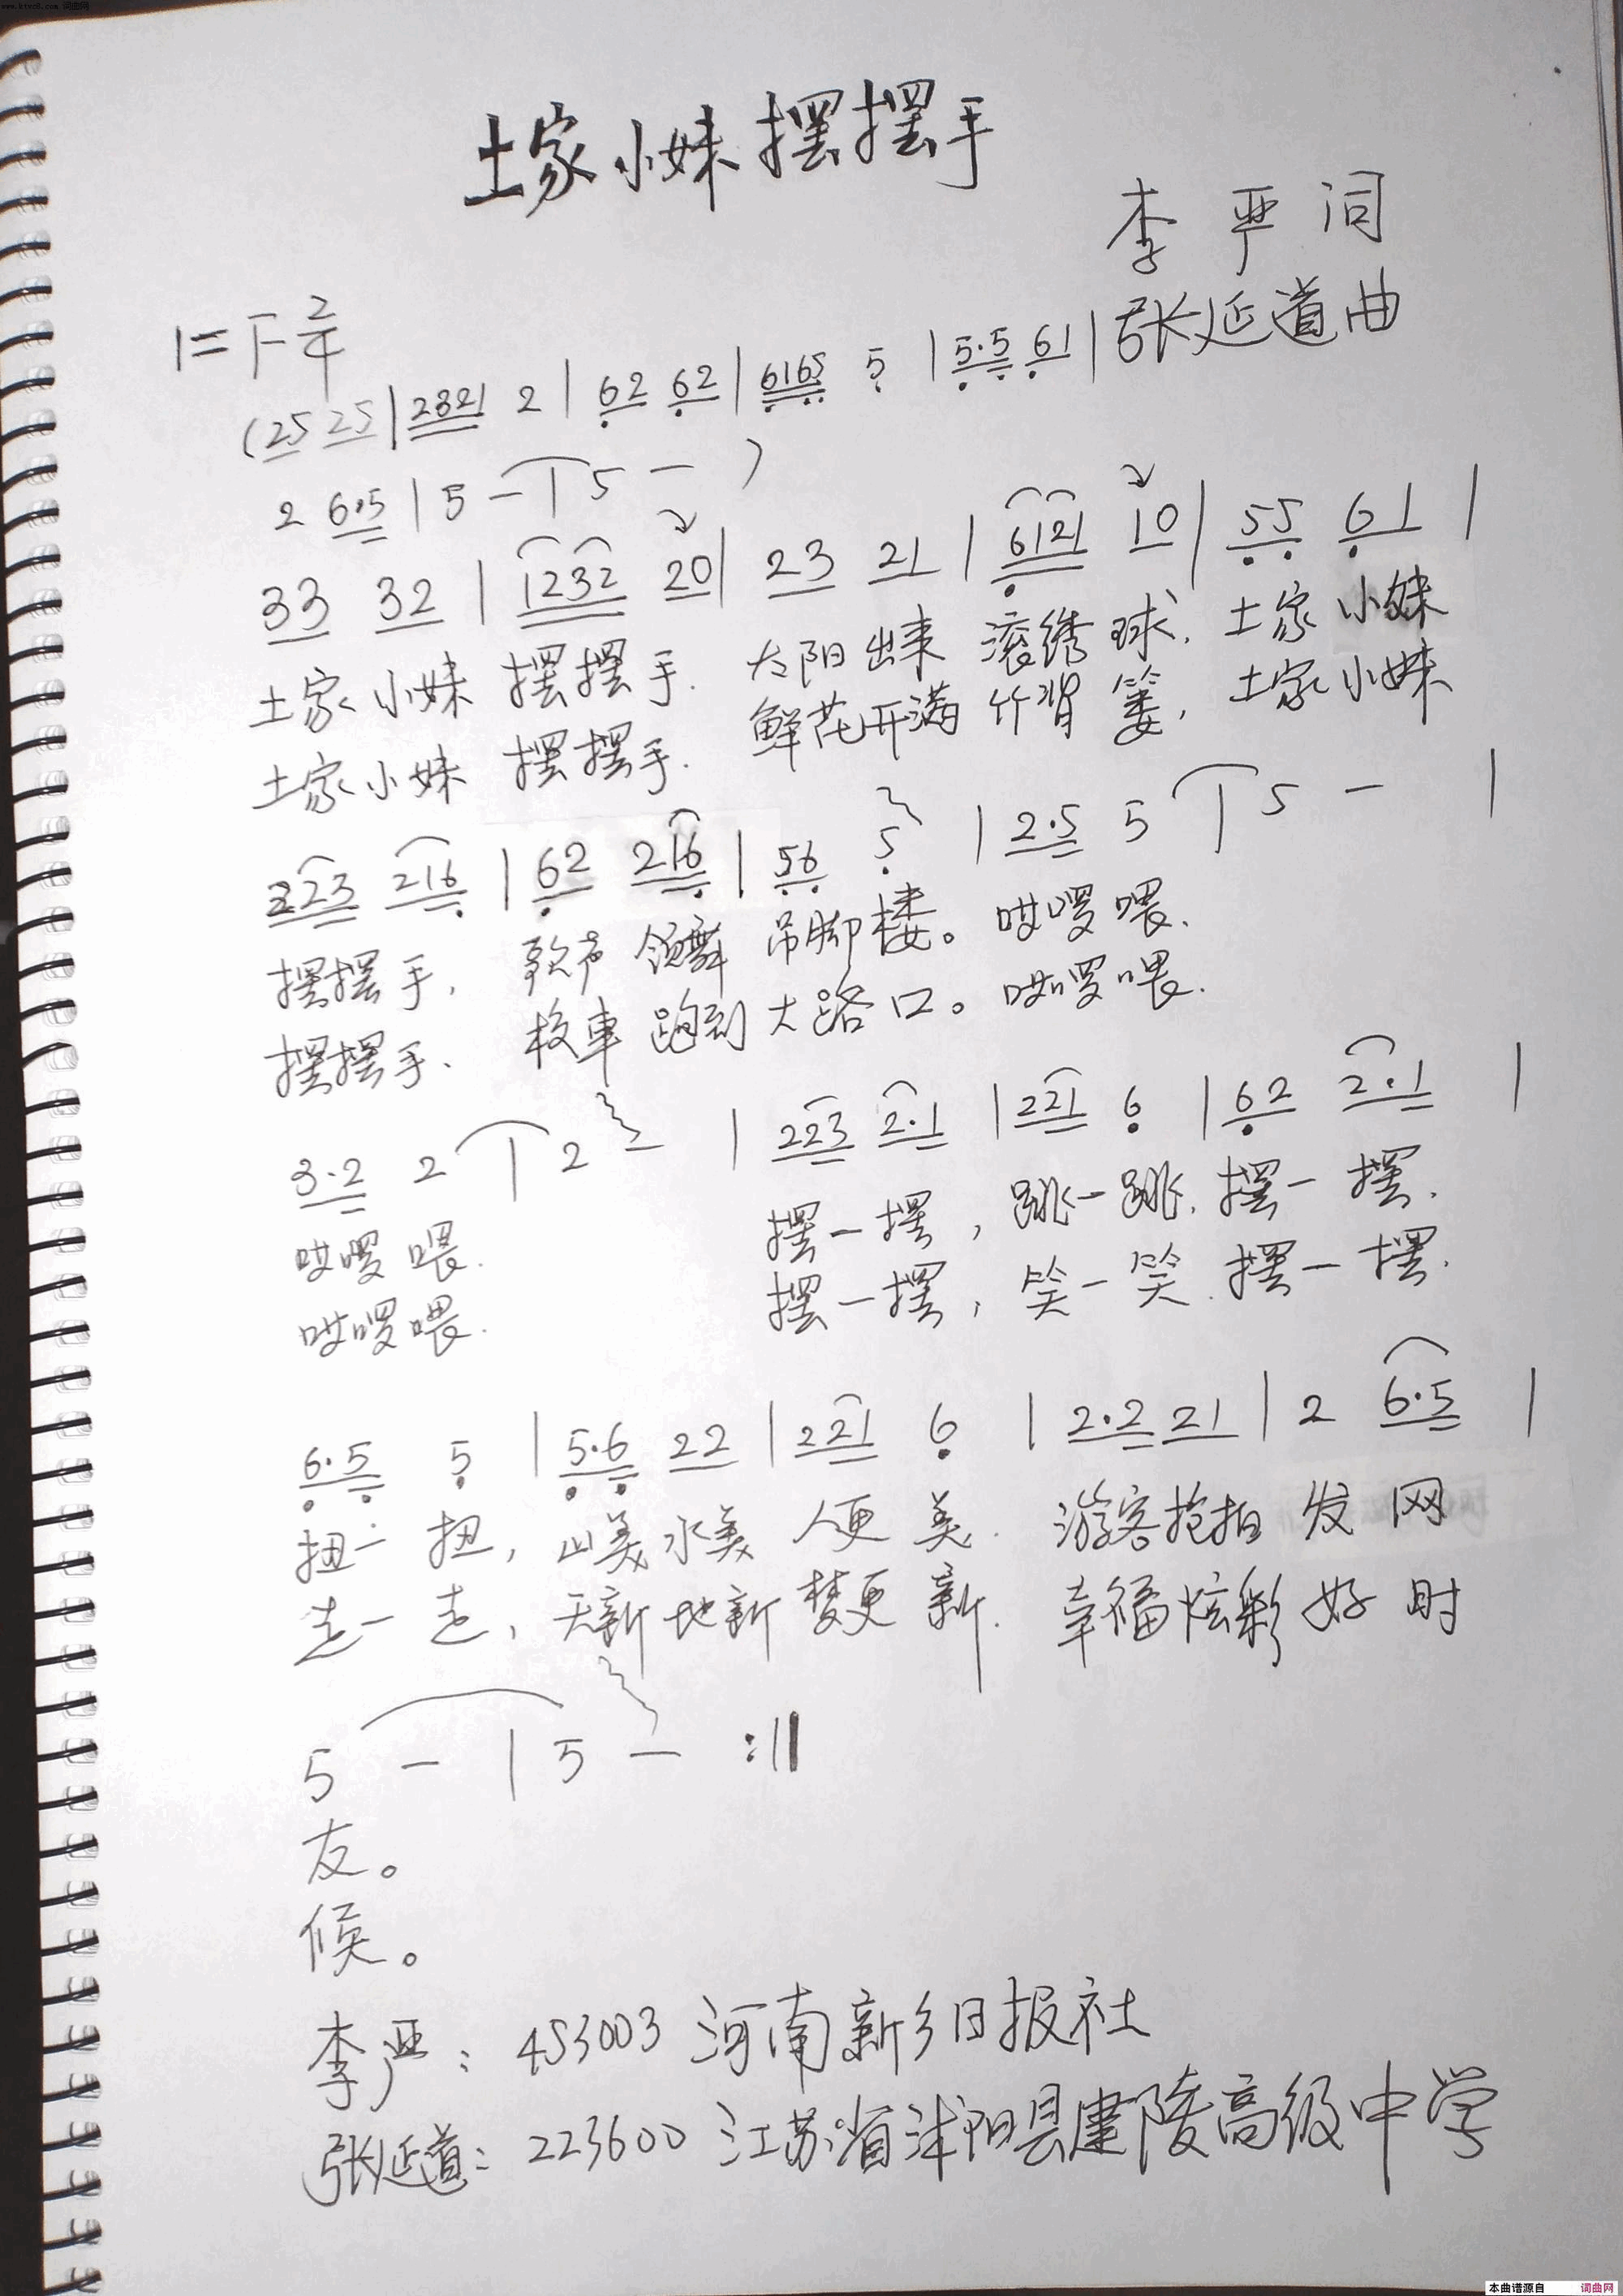 www.ktvc8.com 词曲网
土家小妹摆摆手
李严词
1=F 2/4
张延道曲
(25 25 | 2321 2 | 62 62 | 6165 5 | 5·5 61 |
2 6·5 | 5 - | 5 - )
33 32 | 1232 20 | 23 21 | 6121 10 | 55 61 |
土家小妹 摆摆手. 太阳出来 滚绣球, 土家小妹
土家小妹 摆摆手. 鲜花开满 竹背篓, 土家小妹
223 216 | 62 216 | 56 5 | 2·5 5 | 5 - |
摆摆手, 歌声领舞 吊脚楼。 哎啰喂.
摆摆手、 校车跑到大路口。 哎啰喂.
3·2 2 | 2 - | 223 2·1 | 221 6 | 62 2·1 |
哎啰喂. 摆一摆, 跳一跳, 摆一摆.
哎啰喂. 摆一摆, 笑一笑. 摆一摆.
6·5 5 | 5·6 22 | 221 6 | 2·2 21 | 2 6·5 |
扭一扭, 山美水美 人更美. 游客抢拍发网
走一走, 天新地新梦更新. 幸福炫彩好时
5 - | 5 - :||
友。
候。
李严: 453003 河南新乡日报社
张延道: 223600 江苏省沭阳县建陵高级中学
本曲谱源自 词曲网